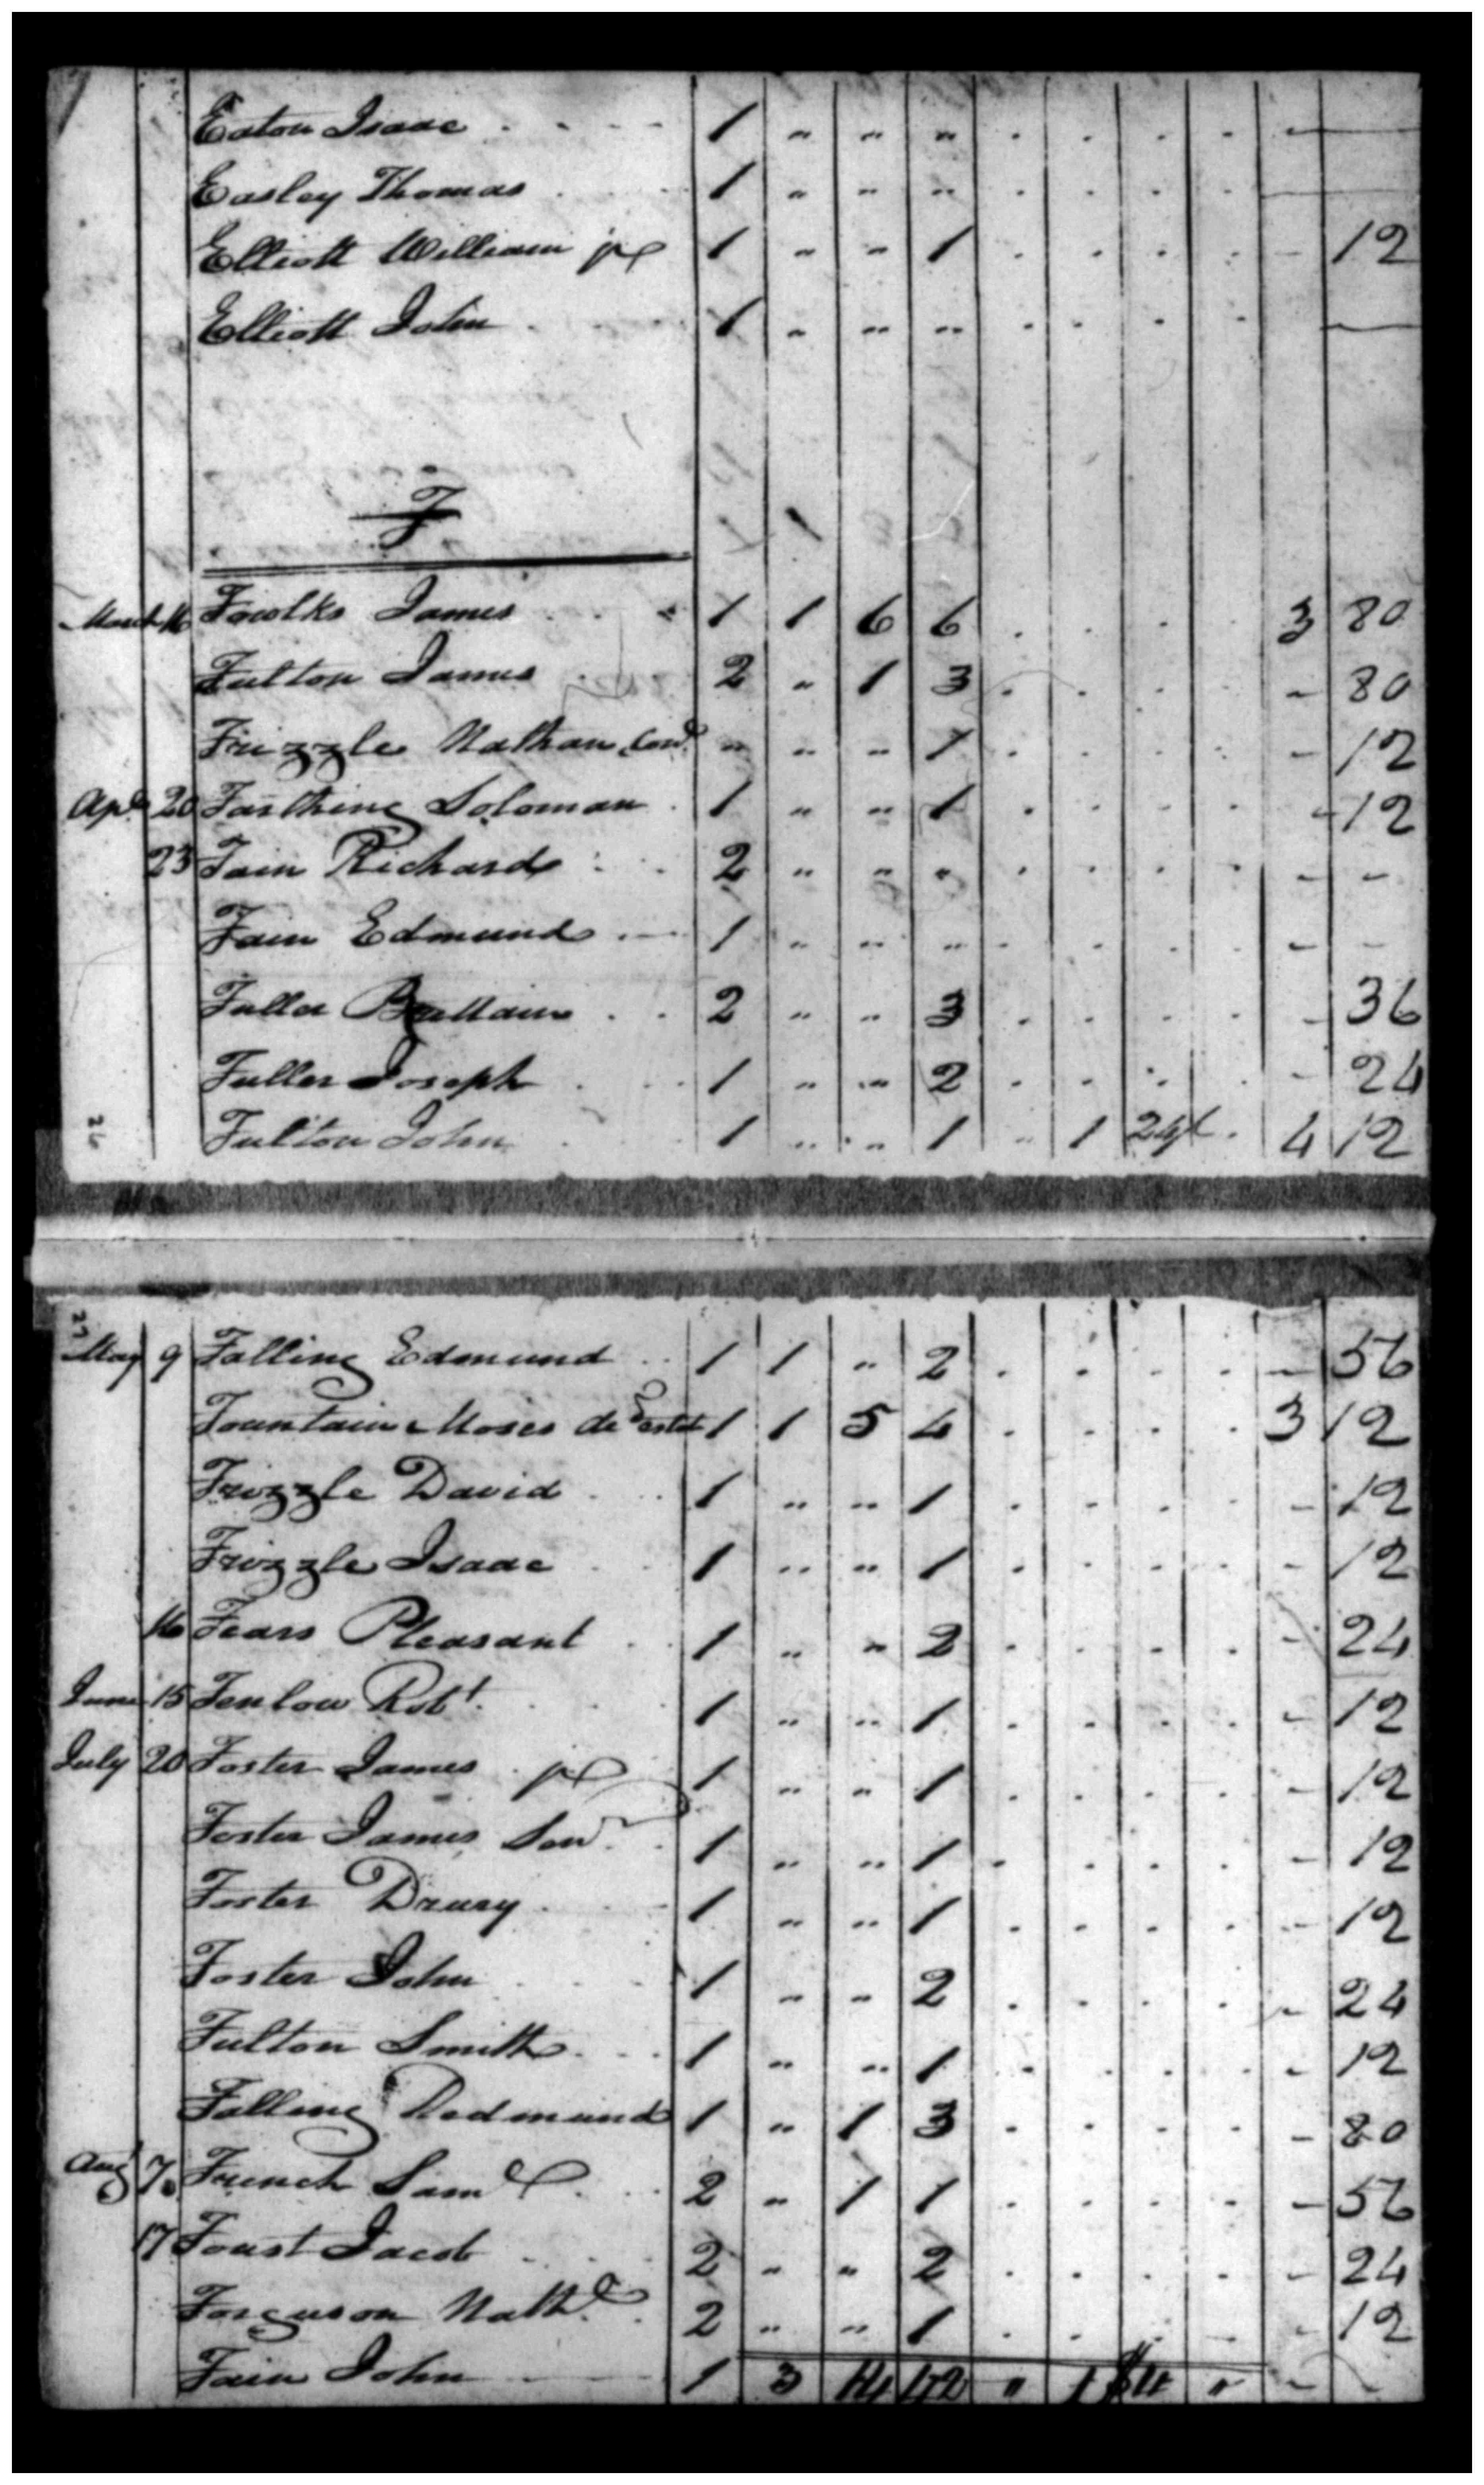 Eaton Isaac 1 " " "
Easley Thomas 1 " " "
Elliott William jr 1 " " 1 - 12
Elliott John 1 " " "
F
March 16 Fowlks James 1 1 6 6 3 80
Fulton James 2 " 1 3 - 80
Frizzle Nathan Cond. " " " 1 - 12
Apl 20 Farthing Soloman 1 " " 1 - 12
23 Fain Richard 2 " " " - -
Fain Edmund 1 " " " - -
Fuller Brittain 2 " " 3 - 36
Fuller Joseph 1 " " 2 - 24
26 Fulton John 1 " " 1 " 1 24/ 4 12
27
May 9 Falling Edmund 1 1 " 2 - 56
Fountain Moses decd estate 1 1 5 4 3 12
Frizzle David 1 " " 1 - 12
Frizzle Isaac 1 " " 1 - 12
16 Fears Pleasant 1 " " 2 - 24
June 15 Fenlow Robt. 1 " " 1 - 12
July 20 Foster James jr 1 " " 1 - 12
Foster James Senr. 1 " " 1 - 12
Foster Drury 1 " " 1 - 12
Foster John 1 " " 2 - 24
Fulton Smith 1 " " 1 - 12
Falling Redmund 1 " 1 3 - 80
Aug 7 French Saml. 2 " 1 1 - 56
17 Foust Jacob 2 " " 2 - 24
Forguson Nathl. 2 " " 1 - 12
Fain John 1 3 14 42 " 1 $4 " - -